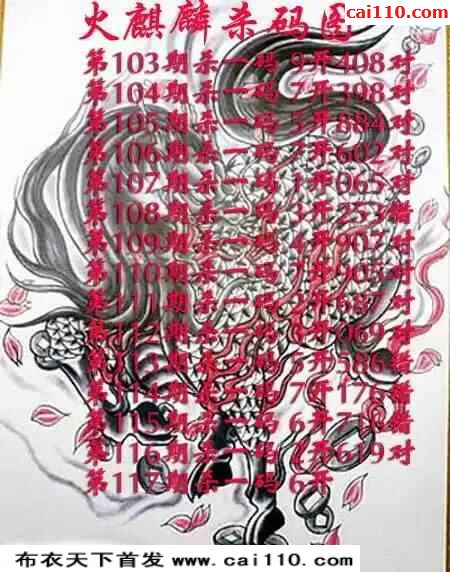 cai110.com
火麒麟杀码图
第103期杀一码9开408对
第104期杀一码7开398对
第105期杀一码5开884对
第106期杀一码 开602对
第107期杀一码1开065对
第108期杀一码3开253错
第109期杀一码4开907对
第110期杀一码 开905对
第111期杀一码 开687对
第112期杀一码 开069对
第113期杀一码5开586错
第114期杀一码7开176错
第115期杀一码6开 错
第116期杀一码 开619对
第117期杀一码6开
布衣天下首发 www.cai110.com